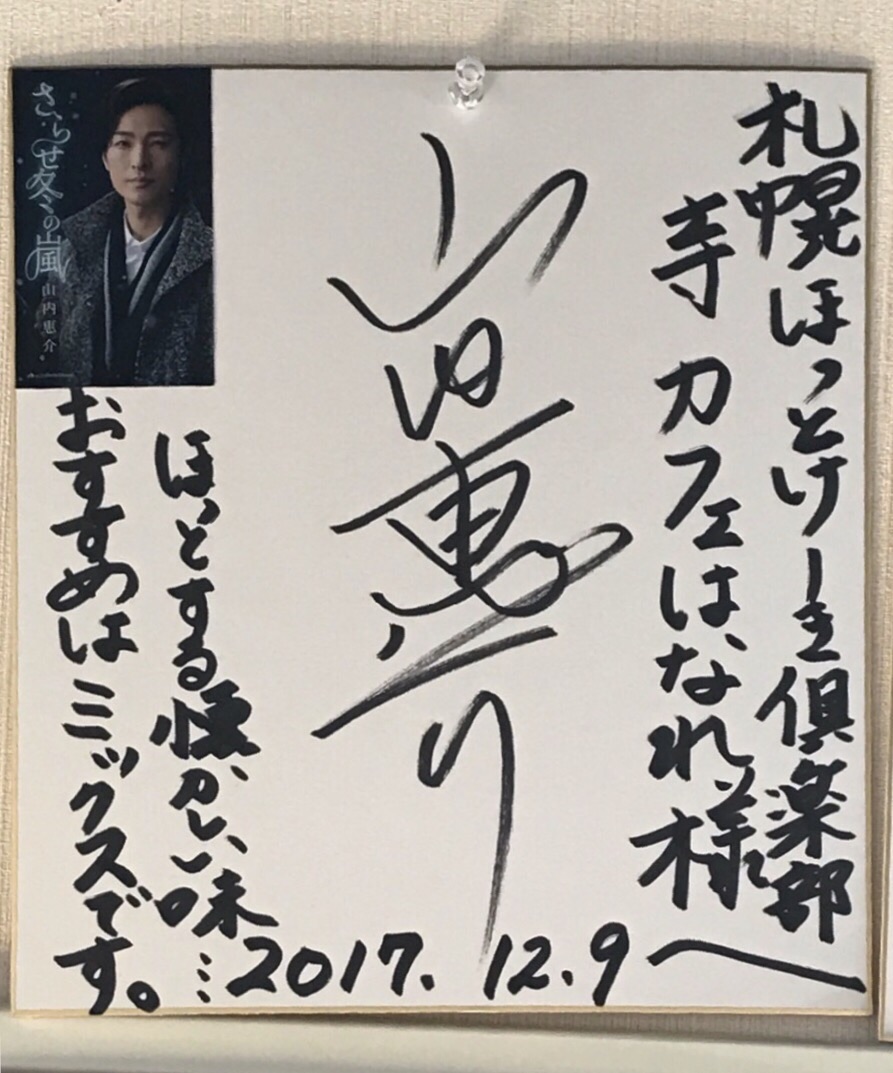 札幌ほっとけーき倶楽部
寺カフェはなれ様へ
山内惠介
ほっとする懐かしい味…
おすすめはミックスです。
2017.12.9
さらせ冬の嵐
山内惠介